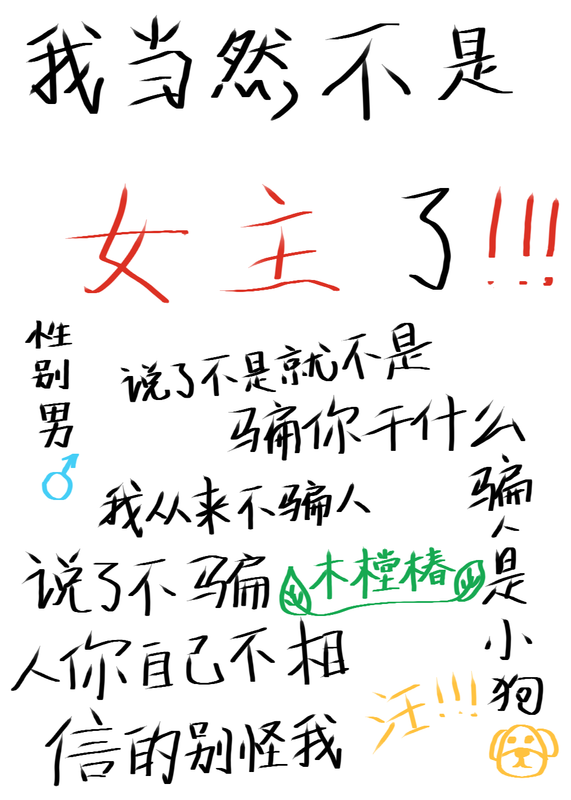 我当然不是
女主了!!!
性别男
说了不是就不是
骗你干什么
我从来不骗人
骗人是小狗
说了不骗
木樘椿
人你自己不相
信的别怪我
汪!!!